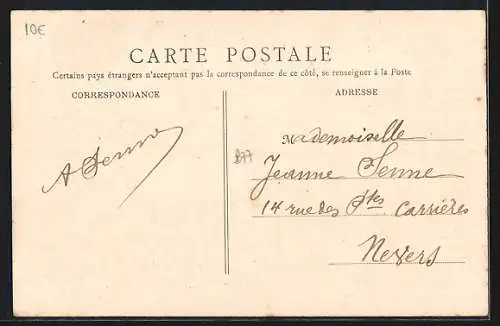 10€
CARTE POSTALE
Certains pays étrangers n'acceptant pas la correspondance de ce côté, se renseigner à la Poste
CORRESPONDANCE
ADRESSE
A Senne
Mademoiselle
B77
Jeanne Senne
14 rue des Ptes Carrières
Nevers